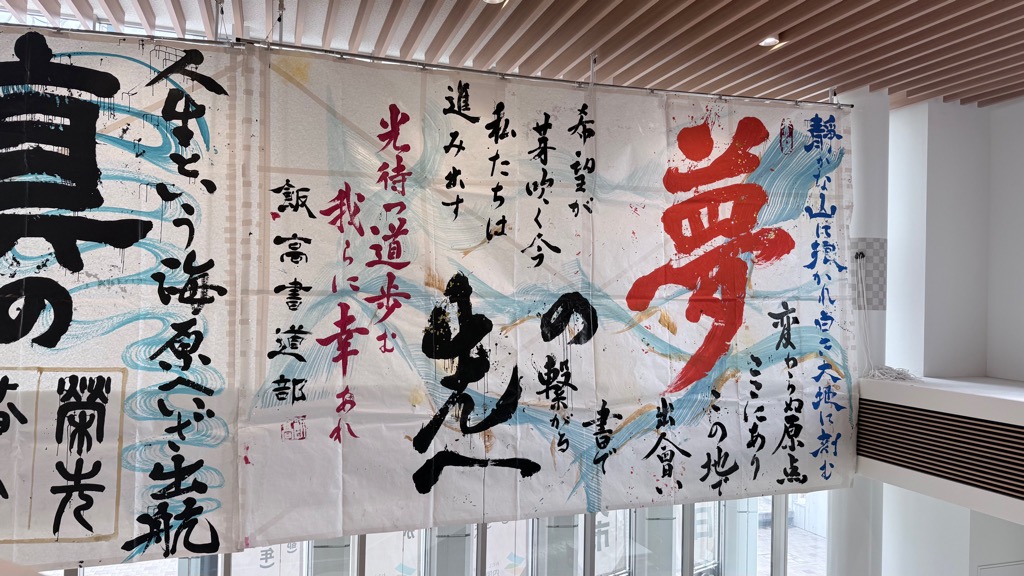 靜かな山に擁かれ白き大地に刻む
変わらぬ原点
ここにあり
夢
この地で
出会い
書で
繋がる
の
先へ
希望が
芽吹く今
私たちは
進み出す
光待つ道歩む
我らに幸あれ
飯高書道部
人生という海原へいざ出航
真の
榮光